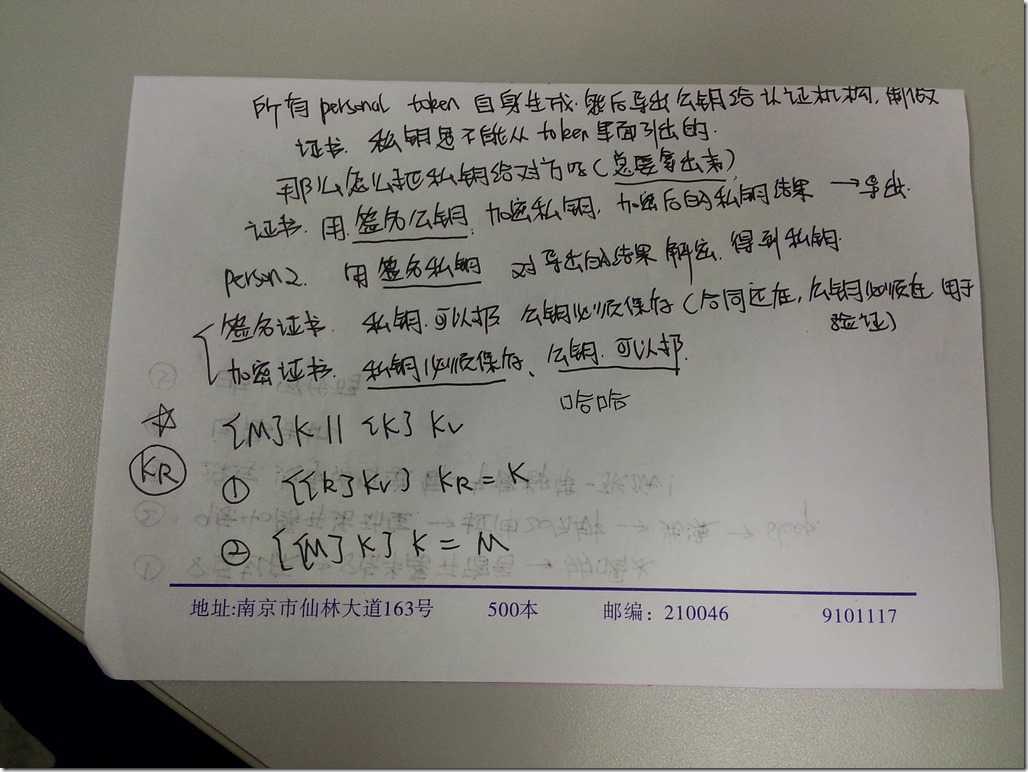 所有 personal token 自身生成. 然后导出公钥给认证机构, 制做
证书. 私钥是不能从 token 里面引出的.
那么怎么把私钥给对方呢 (总要拿出来)
证书. 用 签名公钥, 加密私钥, 加密后的私钥结果 → 导出.
person2. 用 签名私钥 对导出的结果 解密. 得到私钥.
签名证书. 私钥. 可以扔 公钥必须保存 (合同还在, 公钥必须在 用于
验证)
加密证书. 私钥必须保存、公钥. 可以扔.
哈哈
☆ {M}K || {K}KU
KR
① {{K}KU} KR = K
② {{M}K}K = M
地址:南京市仙林大道163号 500本 邮编: 210046 9101117